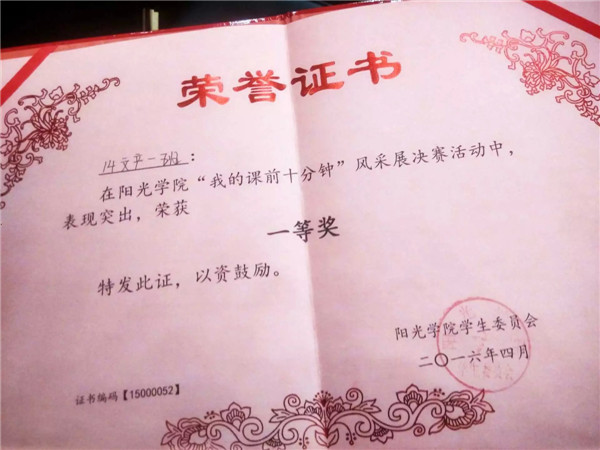 荣誉证书
14文产一班：
在阳光学院“我的课前十分钟”风采展决赛活动中，
表现突出，荣获
一等奖
特发此证，以资鼓励。
阳光学院学生委员会
二〇一六年四月
证书编码【15000052】